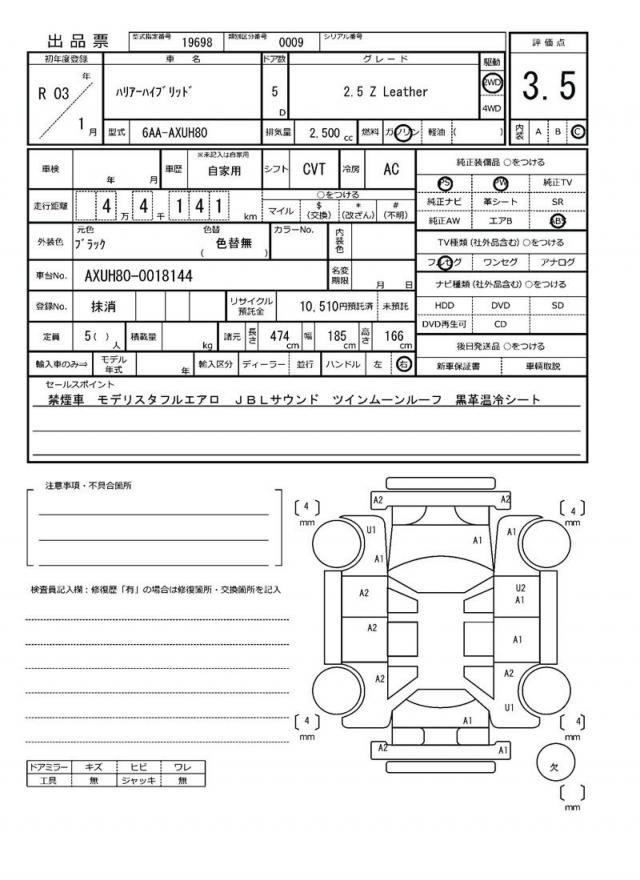 出品票 型式指定番号 19698 類別区分番号 0009 シリアル番号
初年度登録 車名 ドア数 グレード 駆動 評価点
R 03 年 1 月 ハリアーハイブリッド 5 D 2.5 Z Leather 2WD 4WD 3.5
型式 6AA-AXUH80 排気量 2,500 cc 燃料 ガソリン 軽油 ( ) 内装 A B C
車検 年 月 車歴 ※未記入は自家用 自家用 シフト CVT 冷房 AC
走行距離 4 万 4 千 1 4 1 km ○をつける マイル $ (交換) * (改ざん) # (不明)
外装色 元色 ブラック 色替 ( 色替無 ) カラーNo. 内装色
車台No. AXUH80-0018144 名変期限 月 日
登録No. 抹消 リサイクル預託金 10,510円預託済 未預託
定員 5( ) 人 積載量 kg 諸元 長さ 474 cm 幅 185 cm 高さ 166 cm
輸入車のみ⇒ モデル年式 年 輸入区分 ディーラー 並行 ハンドル 左 右
純正装備品 ○をつける
PS PW 純正TV
純正ナビ 革シート SR
純正AW エアB ABS
TV種類(社外品含む) ○をつける
フルセグ ワンセグ アナログ
ナビ種類(社外品含む) ○をつける
HDD DVD SD
DVD再生可 CD
後日発送品 ○をつける
新車保証書 車輌取説
セールスポイント
禁煙車 モデリスタフルエアロ JBLサウンド ツインムーンルーフ 黒革温冷シート
注意事項・不具合箇所
検査員記入欄：修復歴「有」の場合は修復箇所・交換箇所を記入
ドアミラー キズ ヒビ ワレ
工具 無 ジャッキ 無
A2 A2
[ 4 ] mm [ 4 ] mm
U1 A1 A1
A1
A2 U2
A1
A2 A1
A2 A2
U1
A1
[ 4 ] mm [ 4 ] mm
A2 A1
欠
[ ] mm